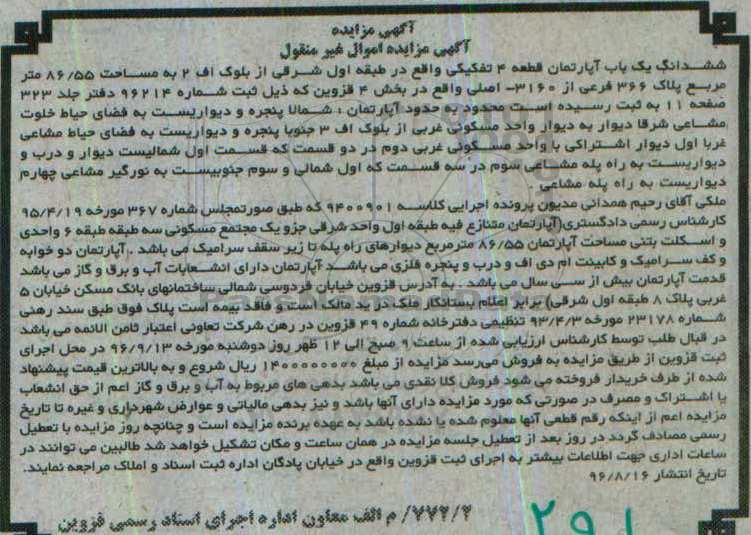 آگهی مزایده
آگهی مزایده اموال غیر منقول
ششدانگ یک باب آپارتمان قطعه ۴ تفکیکی واقع در طبقه اول شرقی از بلوک اف ۲ به مساحت ۸۶/۵۵ متر
مربع پلاک ۳۶۶ فرعی از ۳۱۶۰- اصلی واقع در بخش ۴ قزوین که ذیل ثبت شماره ۹۶۲۱۴ دفتر جلد ۳۲۳
صفحه ۱۱ به ثبت رسیده است محدود به حدود آپارتمان : شمالا پنجره و دیواریست به فضای حیاط خلوت
مشاعی شرقا دیوار به دیوار واحد مسکونی غربی از بلوک اف ۳ جنوبا پنجره و دیواریست به فضای حیاط مشاعی
غربا اول دیوار اشتراکی با واحد مسکونی غربی دوم در دو قسمت که قسمت اول شمالیست دیوار و درب و
دیواریست به راه پله مشاعی سوم در سه قسمت که اول شمالی و سوم جنوبیست به نورگیر مشاعی چهارم
دیواریست به راه پله مشاعی
ملکی آقای رحیم همدانی مدیون پرونده اجرایی کلاسه ۹۴۰۰۹۰۱ که طبق صورتمجلس شماره ۳۶۷ مورخه ۹۵/۴/۱۹
کارشناس رسمی دادگستری(آپارتمان متنازع فیه طبقه اول واحد شرقی جزو یک مجتمع مسکونی سه طبقه ۶ واحدی
و اسکلت بتنی مساحت آپارتمان ۸۶/۵۵ مترمربع دیوارهای راه پله تا زیر سقف سرامیک می باشد . آپارتمان دو خوابه
و کف سرامیک و کابینت ام دی اف و درب و پنجره فلزی می باشد آپارتمان دارای انشعابات آب و برق و گاز می باشد
قدمت آپارتمان بیش از سی سال می باشد . به آدرس قزوین خیابان فردوسی شمالی ساختمانهای بانک مسکن خیابان ۵
غربی پلاک ۸ طبقه اول شرقی) برابر اعلام بستانکار ملک در ید مالک است و فاقد بیمه است پلاک فوق طبق سند رهنی
شماره ۲۳۱۷۸ مورخه ۹۳/۴/۳ تنظیمی دفترخانه شماره ۴۹ قزوین در رهن شرکت تعاونی اعتبار ثامن الائمه می باشد
در قبال طلب توسط کارشناس ارزیابی شده از ساعت ۹ صبح الی ۱۲ ظهر روز دوشنبه مورخه ۹۶/۹/۱۳ در محل اجرای
ثبت قزوین از طریق مزایده به فروش می‌رسد مزایده از مبلغ ۱۴۰۰۰۰۰۰۰۰ ریال شروع و به بالاترین قیمت پیشنهاد
شده از طرف خریدار فروخته می شود فروش کلا نقدی می باشد بدهی های مربوط به آب و برق و گاز اعم از حق انشعاب
یا اشتراک و مصرف در صورتی که مورد مزایده دارای آنها باشد و نیز بدهی مالیاتی و عوارض شهرداری و غیره تا تاریخ
مزایده اعم از اینکه رقم قطعی آنها معلوم شده یا نشده باشد به عهده برنده مزایده است و چنانچه روز مزایده با تعطیل
رسمی مصادف گردد در روز بعد از تعطیل جلسه مزایده در همان ساعت و مکان تشکیل خواهد شد طالبین می توانند در
ساعات اداری جهت اطلاعات بیشتر به اجرای ثبت قزوین واقع در خیابان پادگان اداره ثبت اسناد و املاک مراجعه نمایند.
تاریخ انتشار ۹۶/۸/۱۶
۷۷۲/۲/ م الف معاون اداره اجرای اسناد رسمی قزوین
۲۹۱